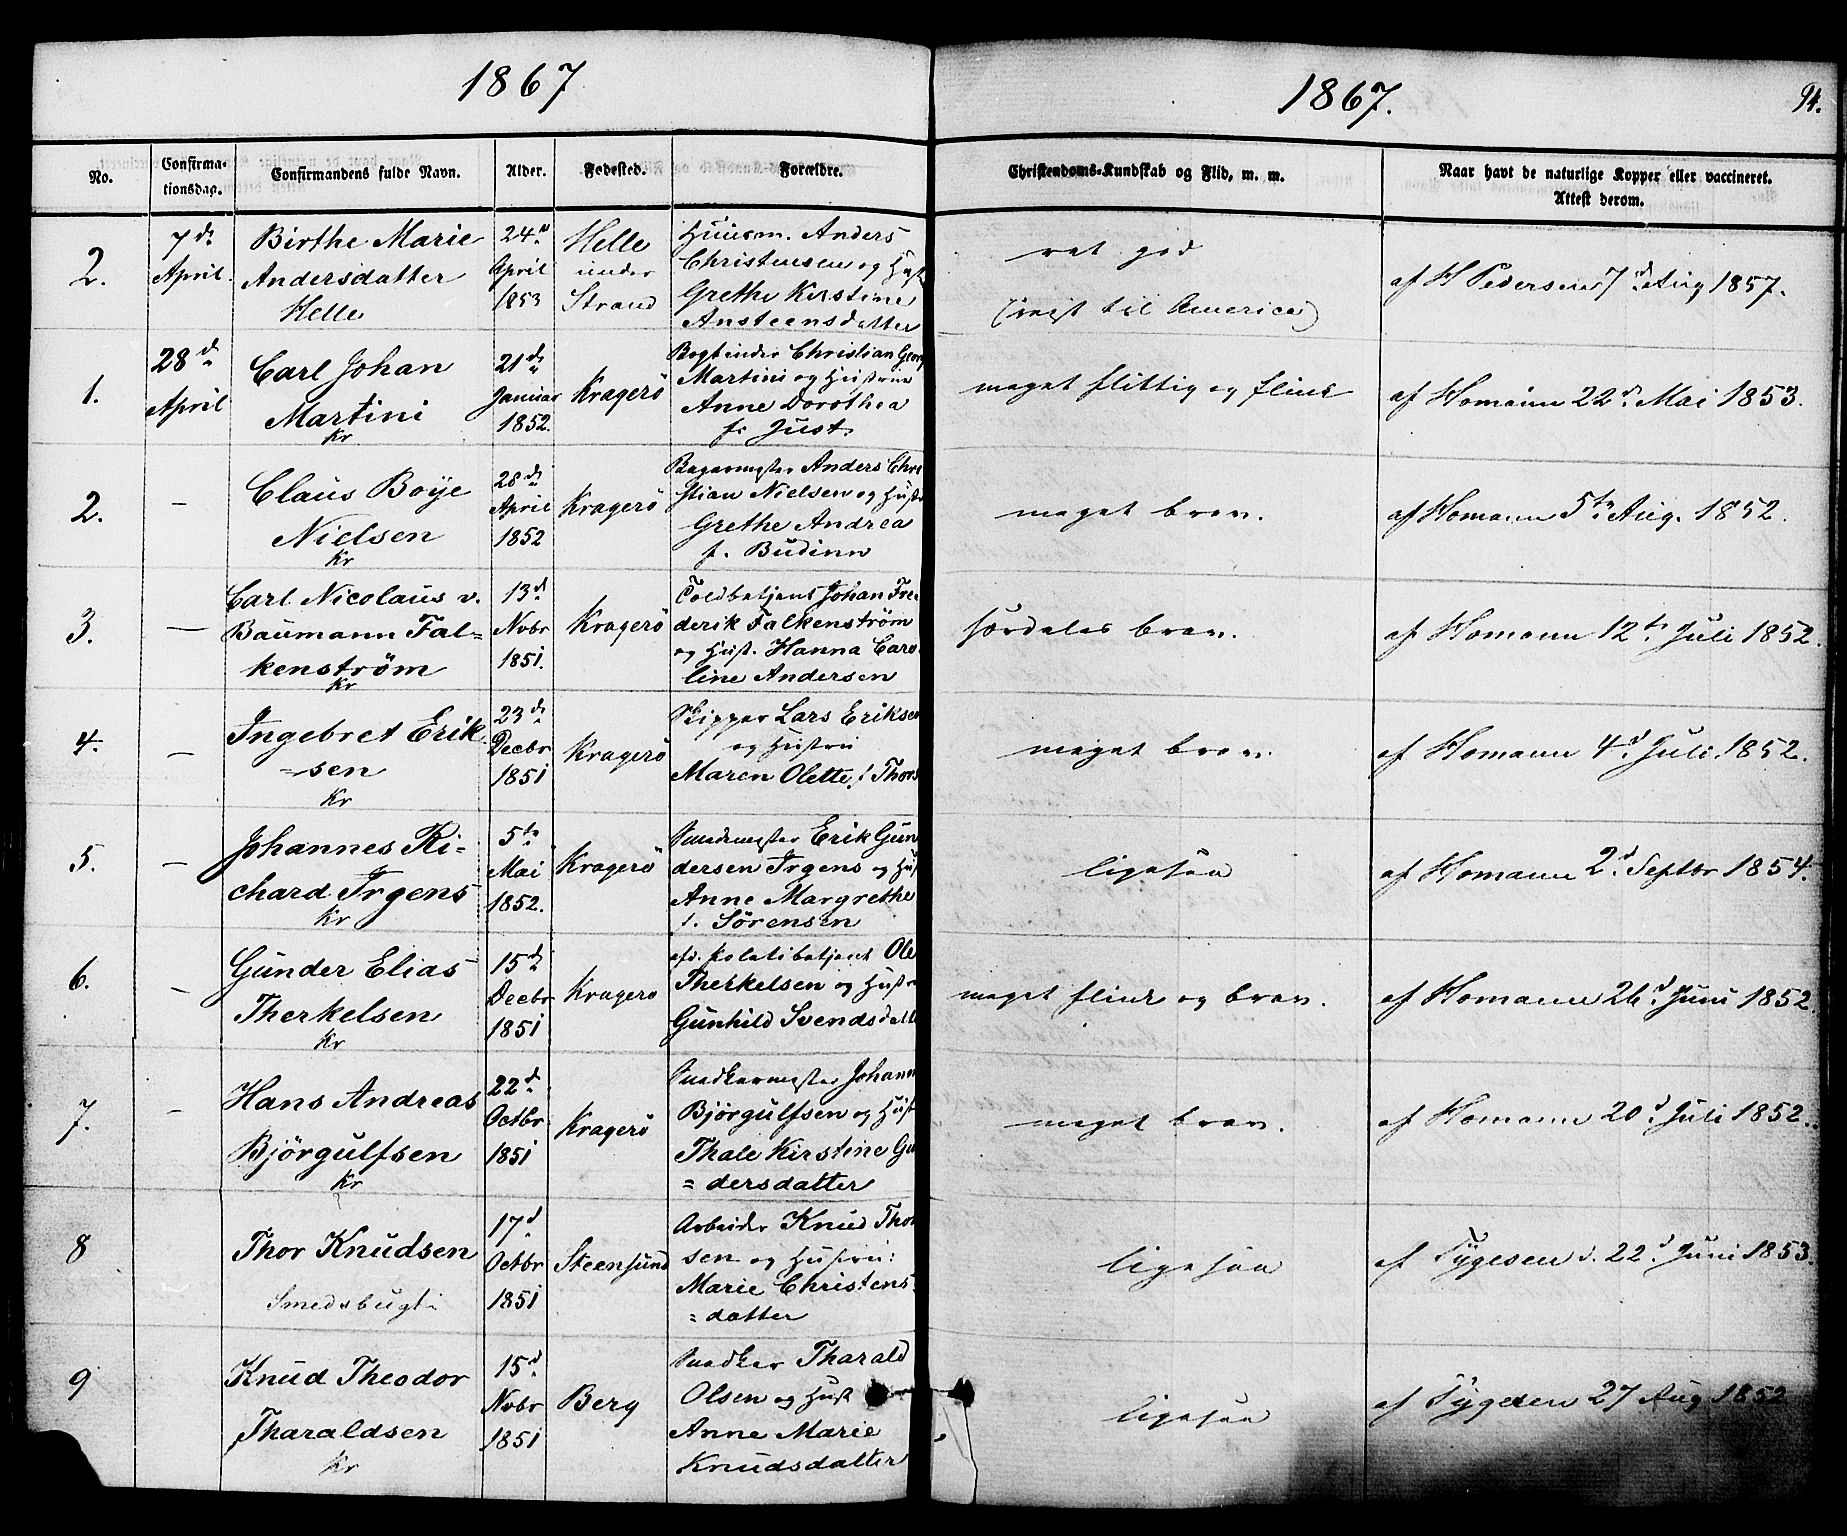 1867
1867.
94.
No.
Confirma-
tionsdag.
Confirmandens fulde Navn.
Alder.
Fødested.
Forældre.
Christendoms-Kundskab og Flid, m. m.
Naar havt de naturlige Kopper eller vaccineret.
Attest derom.
2.
7de
April.
Birthe Marie
Andersdatter
Helle
24d
April
1853
Helle
under
Strand
Huusm. Anders
Christensen og Hust
Grethe Kirstine
Ansteensdatter
ret god
(reist til America)
af H Pedersen 7de Aug 1857.
1.
28de
April
Carl Johan
Martini
Kr
21de
Januar
1852.
Kragerö
Bogtrinder Christian Georg
Martini og Hustrue
Anne Dorothea
f. Just.
meget flittig og flink
af Homann 22d Mai 1853.
2.
—
Claus Boije
Nielsen
Kr
28de
April
1852
Kragerö
Bagermester Anders Chri
stian Nielsen og Hustr
Grethe Andrea
f. Budinn
meget brav.
af Homann 5te Aug. 1852.
3.
—
Carl Nicolaus v.
Baumann Fal=
kenstrøm
Kr
13d
Novbr
1851.
Kragerö
Toldbetjent Johan Fre-
derik Falkenstrøm
og Hust. Hanna Caro
line Andersen
særdeles brav.
af Homann 12te Juli 1852.
4.
—
Ingebret Erik
=sen
Kr
23de
Decbr
1851
Kragerö
Skipper Lars Eriksen
og Hustru
Maren Olette f. Thors
meget brav.
af Homann 4d Juli 1852.
5.
—
Johannes Ri-
chard Irgens
Kr
5te
Mai
1852.
Kragerö
Smedmester Erik Gun
dersen Irgens og Hu
Anne Margrethe
f. Sörensen
ligesaa
af Homann 2d Septbr 1854.
6.
—
Gunder Elias
Therkelsen
Kr
15de
Decbr
1851
Kragerö
afd. Politibetjent Ole
Therkelsen og Hustr
Gunhild Svendsdatt
meget flink og brav.
af Homann 26d Juni 1852.
7.
—
Hans Andreas
Björgulfsen
Kr
22d
Octbr
1851
Kragerö
Snedkermester Johann
Björgulfsen og Hust
Thale Kirstine Gu
=dersdatter
meget brav.
af Homann 20d Juli 1852.
8
Thor Knudsen
Smedsbugt
17d
Octbr
1851
Steensund
Arbeider Knud Thor
sen og Hustru:
Marie Christens
=datter
ligesaa
af Tygesen d. 22d Juni 1853.
9
Knud Theodor
Tharaldsen
Kr
15d
Novbr
1851
Berg
Snedker Tharald
Olsen og Hust
Anne Marie
Knudsdatter
ligesaa
af Tygesen 27 Aug 1852